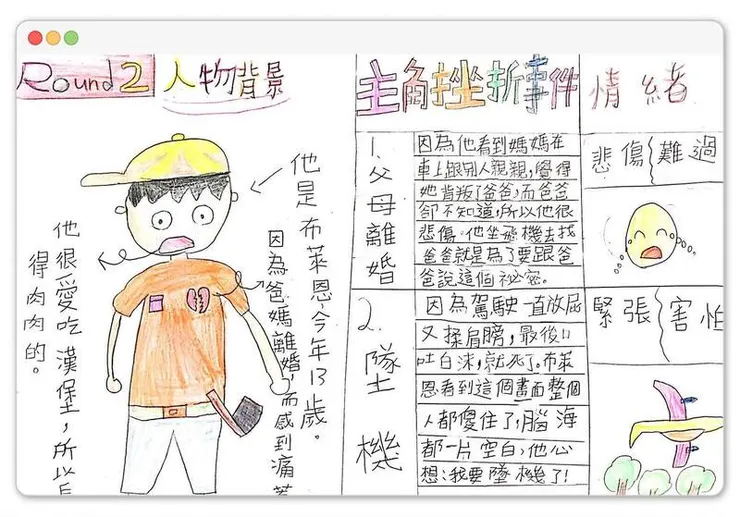 Round 2 人物背景
他是布萊恩,今年13歲。
因為爸媽離婚,而感到痛苦
他很愛吃漢堡,所以長
得肉肉的。
主角挫折事件
情緒
1.父母離婚
因為他看到媽媽在
車上跟別人親親,覺得
她背叛了爸爸,而爸爸
卻不知道,所以他很
悲傷。他坐飛機去找
爸爸就是為了要跟爸
爸說這個祕密。
悲傷 難過
2.墜機
因為駕駛一直放屁
又揉肩膀,最後口
吐白沫,就死了。布萊
恩看到這個畫面整個
人都傻住了,腦海
都一片空白,他心
想:我要墜機了!
緊張 害怕